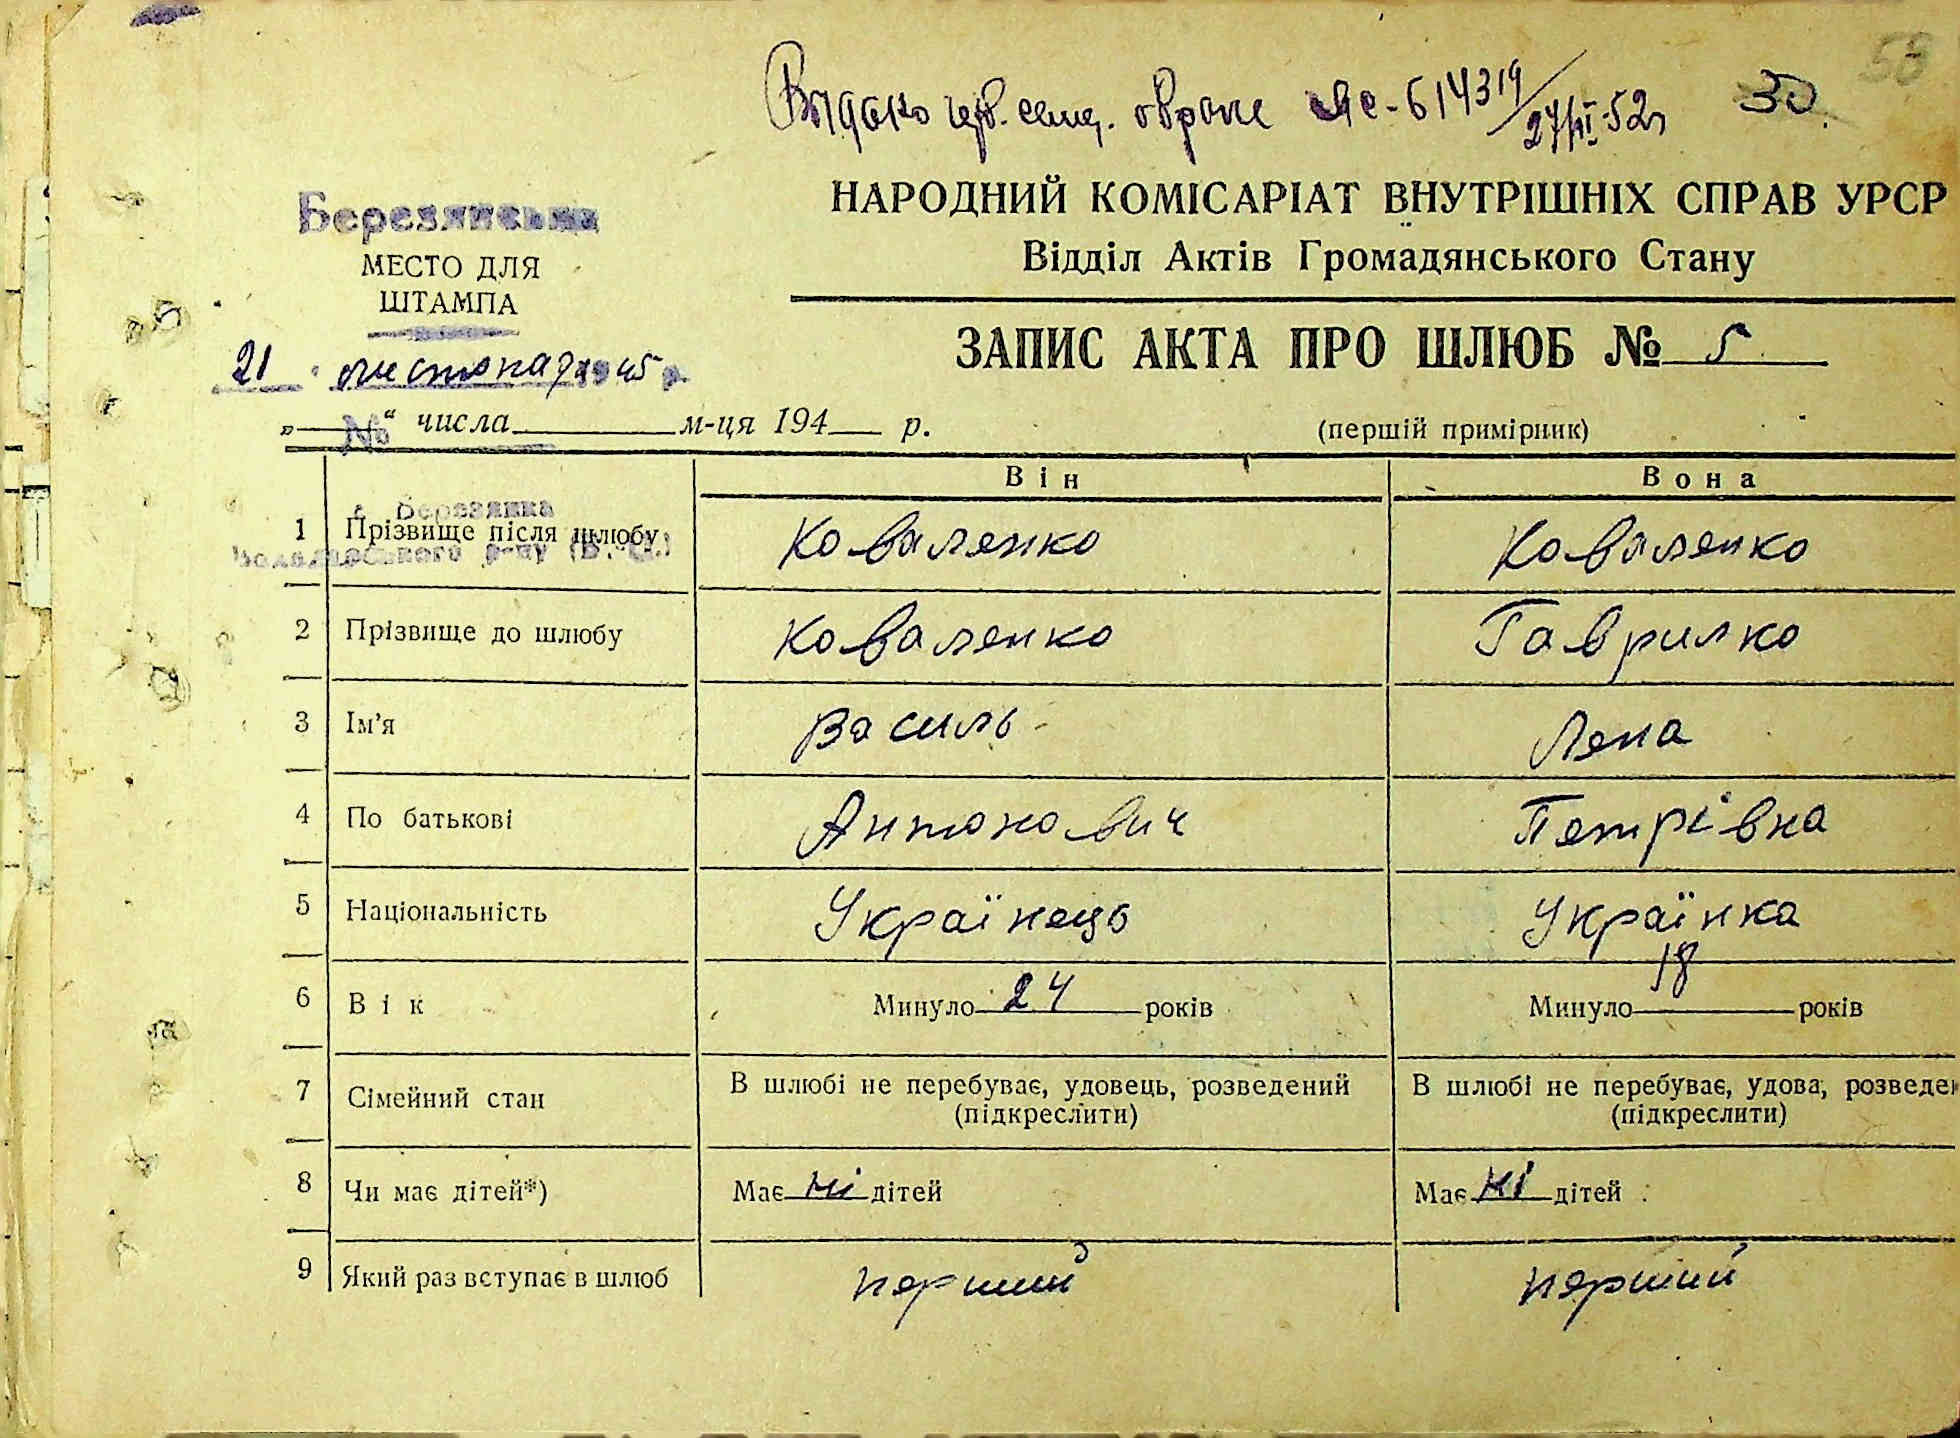 58
30
614319
НАРОДНИЙ КОМІСАРІАТ ВНУТРІШНІХ СПРАВ УРСР
Березянська
Відділ Актів Громадянського Стану
МЕСТО ДЛЯ
ШТАМПА
ЗАПИС АКТА ПРО ШЛЮБ № 5
21 листопад 1945 р.
№
„ “ числа м-ця 194 р.
(першій примірник)
Він Вона
Березянка
1 Прізвище після шлюбу Коваленко Коваленко
2 Прізвище до шлюбу Коваленко Гаврилко
3 Ім’я Василь Лена
4 По батькові Антонович Петрівна
5 Національність Українець Українка
6 Вік Минуло 24 років Минуло 18 років
7 Сімейний стан В шлюбі не перебуває, удовець, розведений В шлюбі не перебуває, удова, розведен
(підкреслити) (підкреслити)
8 Чи має дітей*) Має ні дітей Має ні дітей
9 Який раз вступає в шлюб перший перший